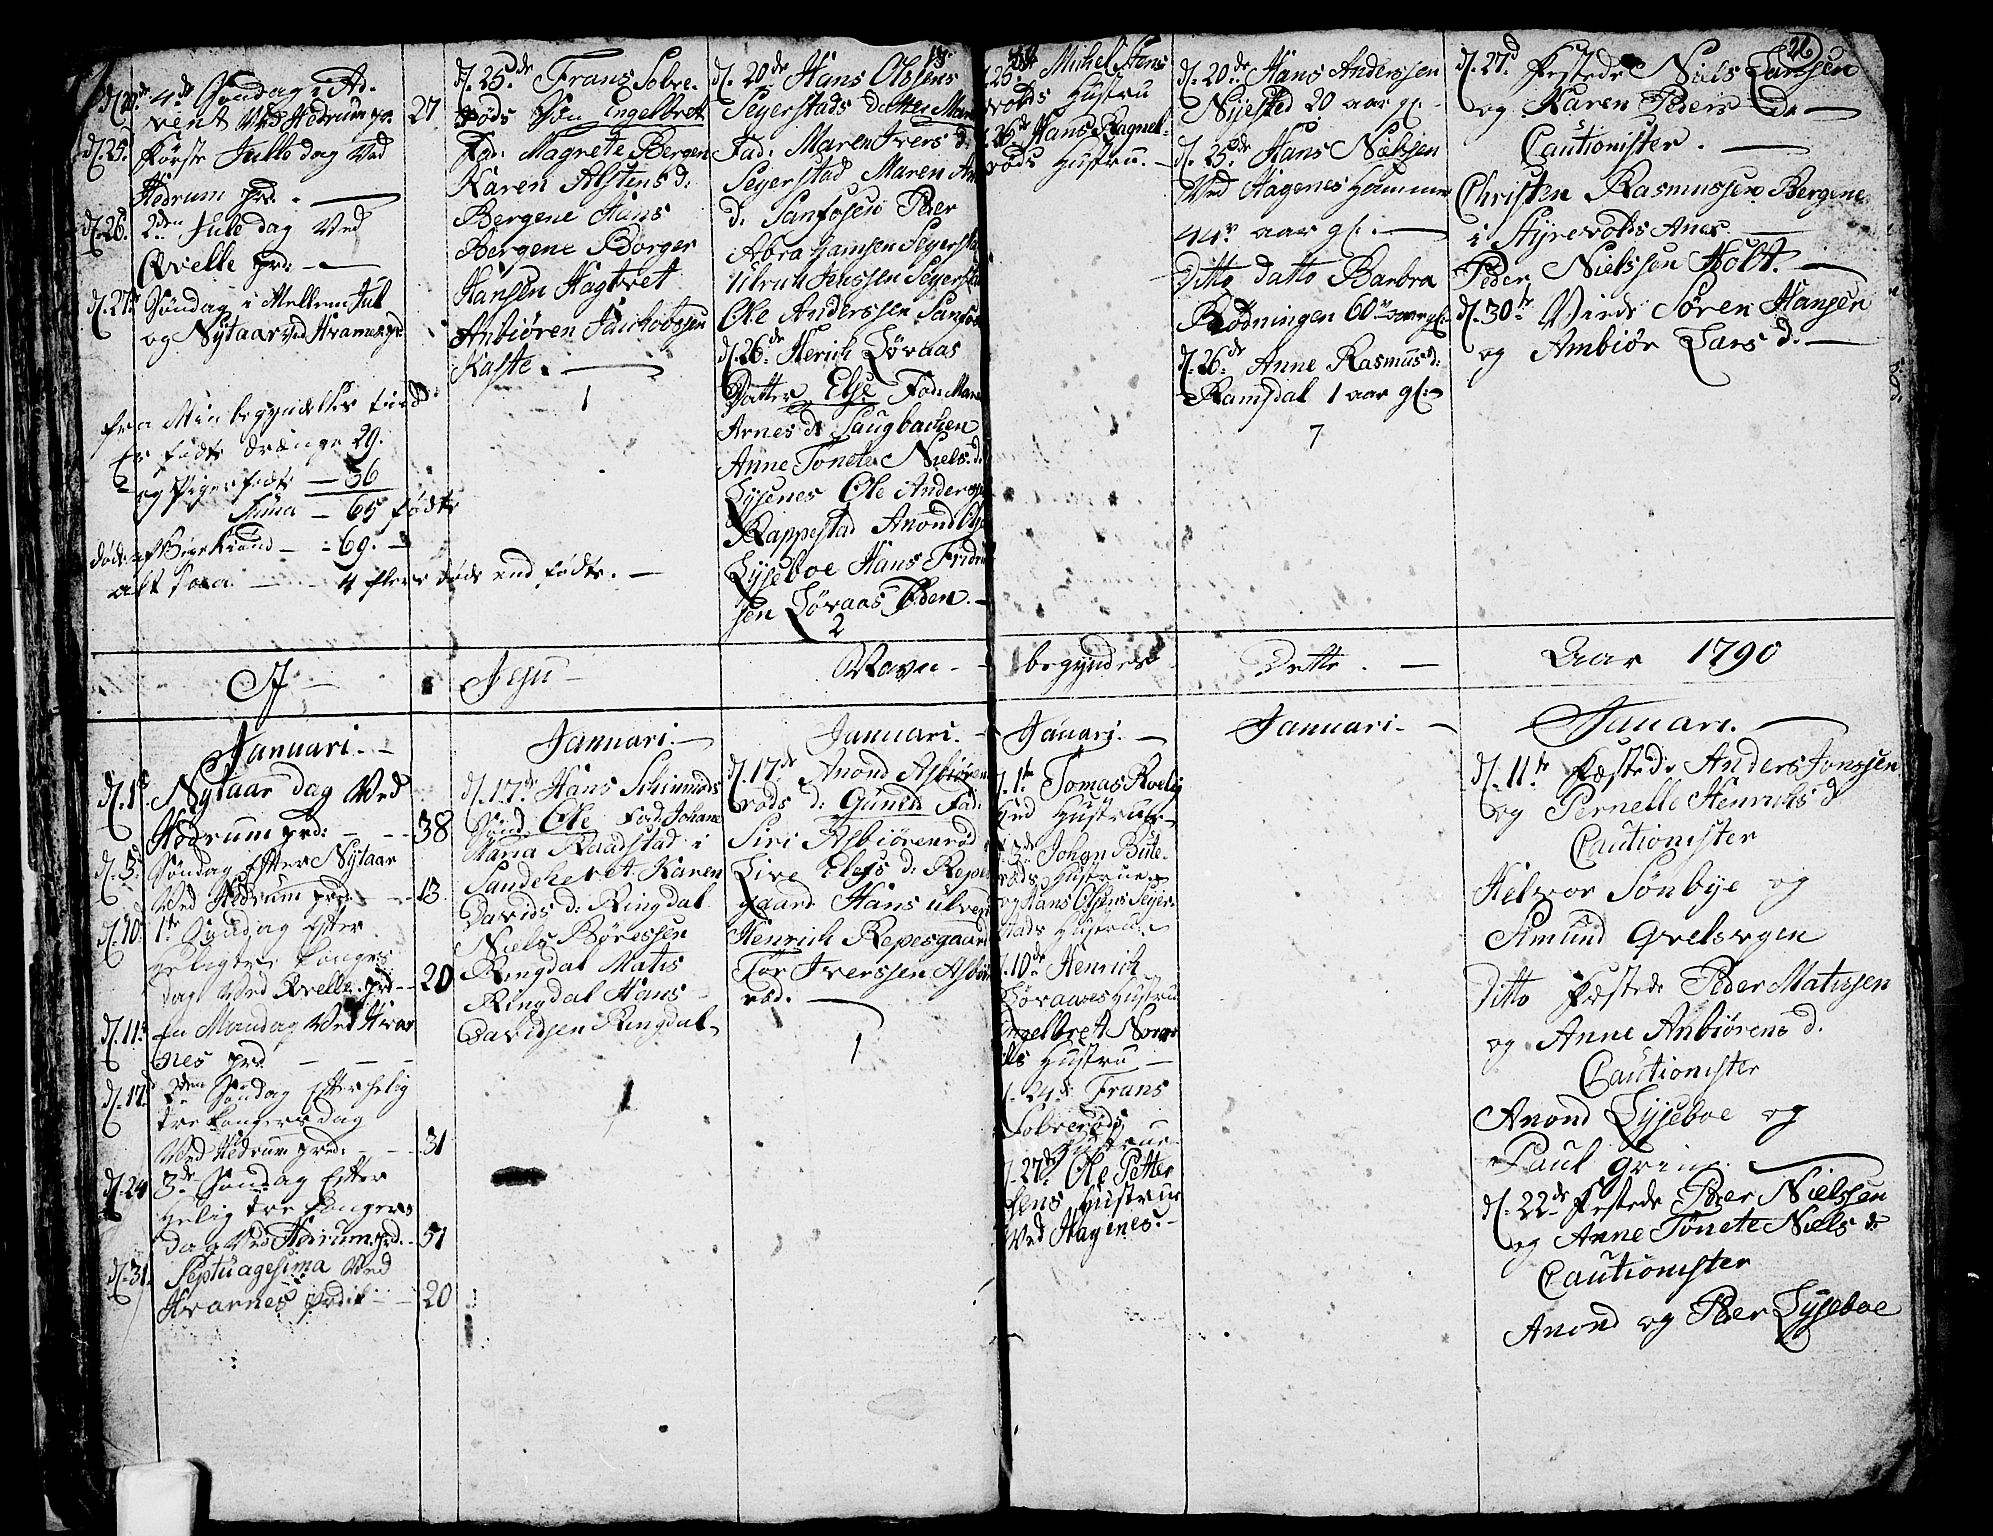 d. 20de 4de Søndag i Ad-
vent Ved Hedrum pr. 27
d. 25. Første Julle dag Ved
Hedrum prd.
d. 26. 2den Jule dag Ved
Qvelle prd:
d. 27de Søndag i Mellem Jul
og Nytaar ved Hvarnes prd
fra Min begyndelses tiid
Er fødte drænge 29.
og Piger fødte — 36
Suma — 65 fødte
døde af Bøgekiend — 69.
alt saa — 4 flere døde end fødte.
d. 25de Frans Sobre-
røds Søn Engelbret
Fad: Magrete Bergen
Karen Alstens d:
Bergene Hans
Bergene Borger
Hansen Hagtvet
Anbiøren Jachobssen
Kaste.
1
18
d. 20de Hans Olssens
Seyerstads datter Mari
Fad: Maren Ivers d:
Seyerstad Maren
d. Sanfosen Peder
Abrahamsen Seyersta
Ulrich Jenssen Seyersta
Ole Anderssen Sanfos
d. 26de Herich Løvaas
Datter Else Fad: Mare
Arnes d: Saugbachen
Anne Tonete Niels d:
Lysenes Ole Anderssen
Rappestad Anond
Lyseboe Hans Fridri
sen Løvaas Øden.
2
25de Michel Stens
volds Hustru
26de Hans Ragnel-
røds Hustru.
d. 20de Hans Anderssen
Nyested 20 aar gl.
d. 25de Hans Nielssen
Ved Hagenes Hammer
44r aar gl.
Ditto datto Barbra
Rødningen 60 aar gl.
d. 26de Anne Rasmus d:
Ramsdal 1 aar gl:
7
26
d. 27d Festede Niels Larssen
og Karen Peders d.
Cautionister.
Christen Rasmussen Bergene
i Styrvolds Anex.
Peder Nielssen Holt.
d. 30te Viede Søren Hansen
og Ambiør Lars d.
I Jesu Navn begyndes Dette Aar 1790
Januari.
d. 1te Nytaar dag Ved
Hedrum prd: 38
d. 3. Søndag Efter Nytaar
Ved Hedrum prd: 13
d. 10. 1te Søndag Efter
helig tre konges
dag Ved Qvelle prd 20
d. 11te en Mandag Ved Hvar
nes prd
d. 17. 2den Søndag Efter helig
tre kongers dag
Ved Hedrum prd: 31
d. 24 3de Søndag Efter
Helig tre kongers
dag Ved Hedrum prd. 51
d. 31. Septuagesima Ved
Hvarnes prdik 20
Januari.
d. 17de Hans Skinmods
Sønd Ole Fad Johane
Maria Raadstad i
Sandeherret Karen
Davids d: Ringdal
Niels Børessen
Ringdal Matis
Ringdal Hans
Davidsen Ringdal
1
Januari.
d. 17de Anond Asbiøren
røds d: Guneld Fad:
Siri Asbiørenrød
Live Elefs d: Repes
gaard Hans ulven
Henrich Repesgaard
Tor Iverssen Asbiø
rød.
1
Januari.
d. 1te Tomas Kvelig
hed Hustrue
3de Johan Bute-
røds Hustrue
og Hans Olssens Seyer-
stads Hustrue
10de Henrich
Løvaases Hustru
Engelbret Norges
Hustru
24de Frans
Sobrerøds
Hustrue
27de Ole Petter
sens Hustrue
Ved Hagenes.
Januari.
Januari.
d. 11te Fæstede Anders Jonssen
og Pernelle Henrichs d
Cautionister
Helvor Sønbye og
Amund Qvelsvgen
Ditto Fæstede Peder Matissen
og Anne Anbiørens d.
Cautionister
Anond Lysseboe og
Paul Grin.
d. 22de Festede Peder Nielssen
og Anne Tonete Niels d:
Cautionister
Anond og Peder Lysseboe